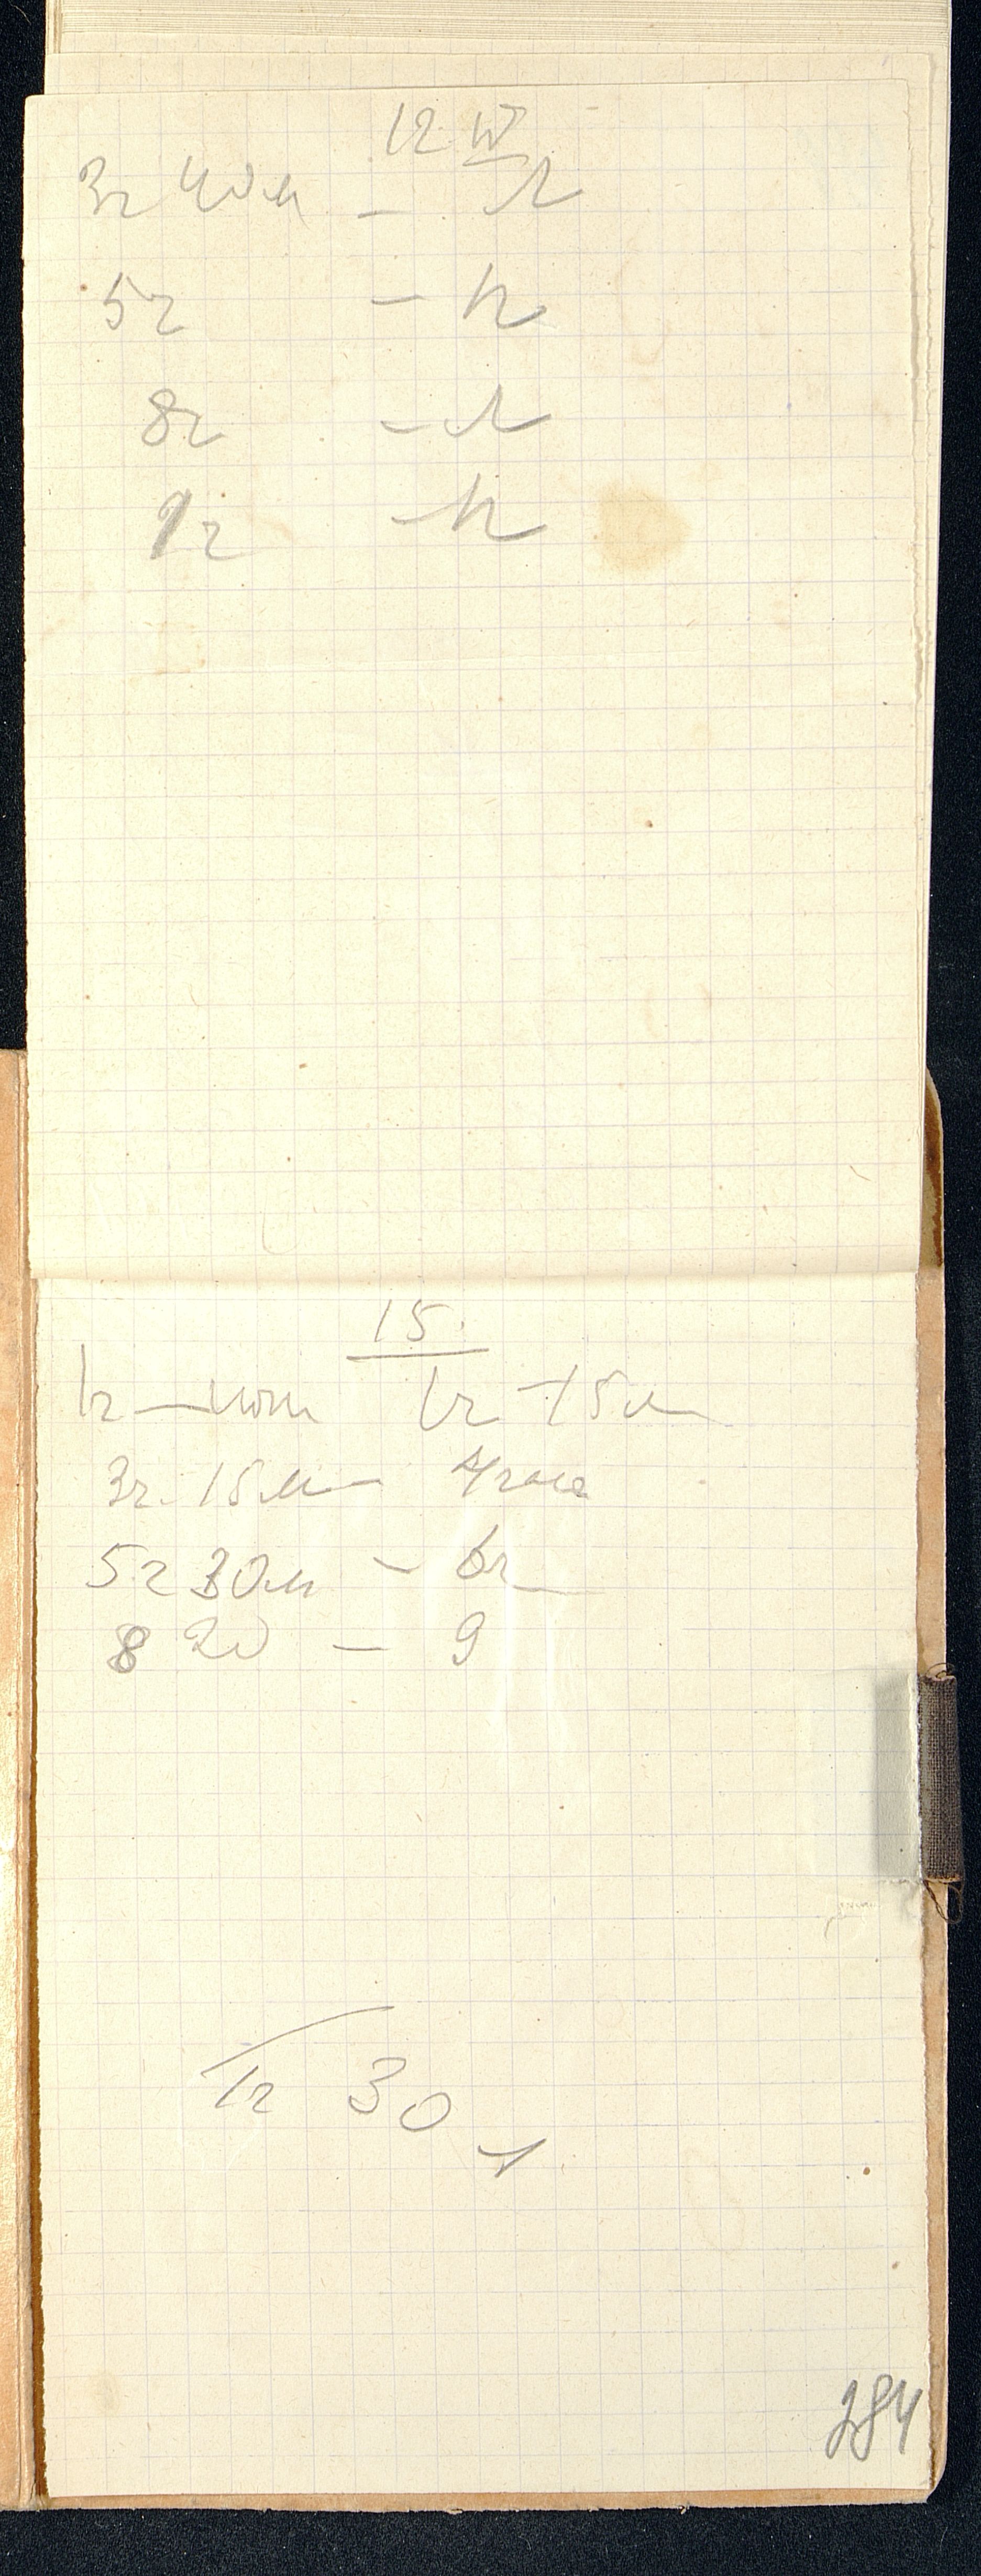 12 IV
3ч 40м - л
5ч - к
8ч - л
9ч - к
15.
1ч - ночи 1ч - 15м
3ч. 15м - 4 часа
5ч 30м - 6ч
8 20 - 9
1ч 30
284